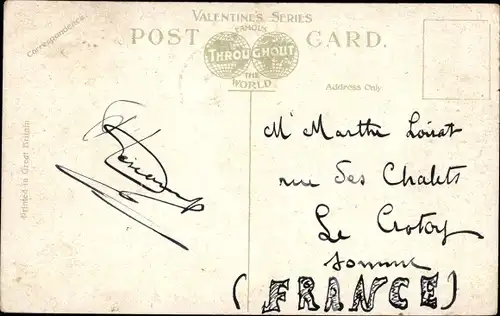 VALENTINES SERIES
FAMOUS
POST CARD.
THROUGHOUT
THE
WORLD
Correspondence.
Address Only
Printed in Great Britain
M Marthe Loirat
rue des Chalets
Le Crotoy
Somme
(FRANCE)